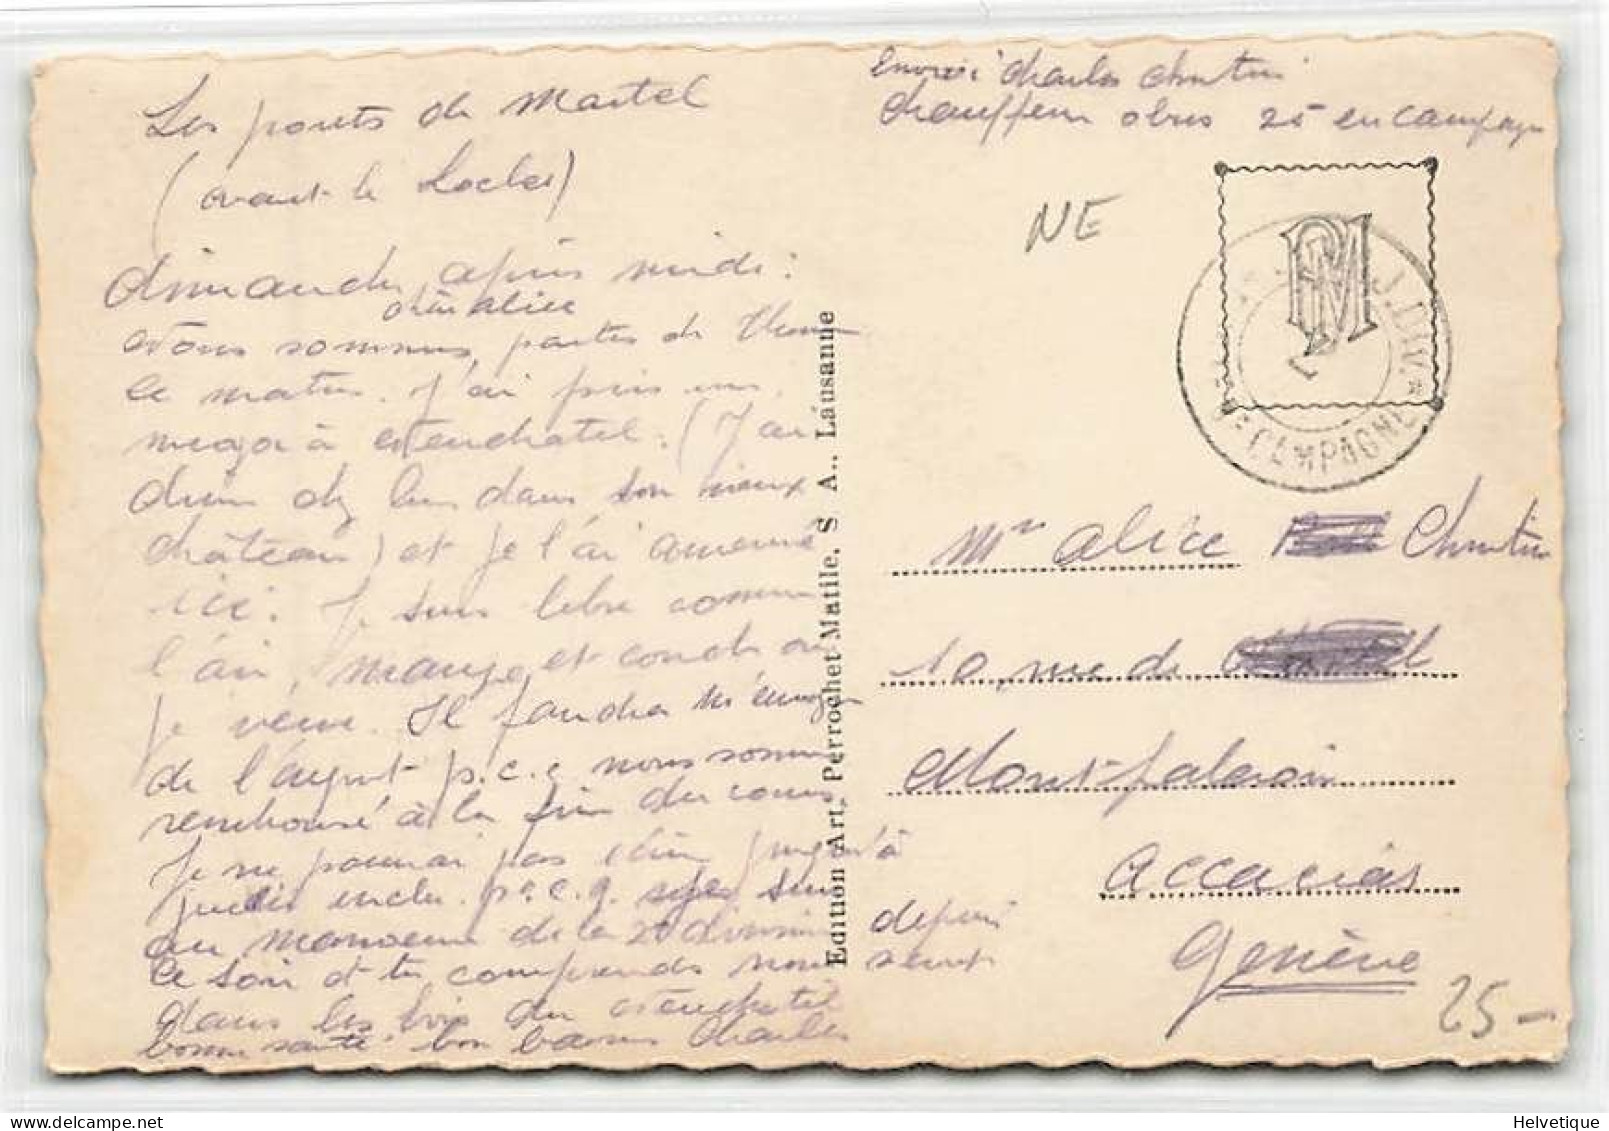 Les ponts de Martel
(avant le Locles)
dimanche après midi:
chère alice
Nous sommes, parties de
le matin. J'ai pris un
major à Neuchatel. (J'ai
diner chez lui dans son vieux
château) et je l'ai amené
ici. Je suis libre comme
l'air, mange et couche où
je veux. Il faudra m'envoyer
de l'argent p.c.q nous sommes
remboursé à la fin du cours
Je ne pourrai pas jusqu'à
p.c.q. suis
au manoeuvre de la 2e division depuis
ce soir et tu comprends nous seront
dans les bois du Neuchatel
bonne santé. bon baisers Charles
Edition Art. Perrochet Matile. S A.. Lausanne
Charles
Chauffeur obus 25 en campagne
NE
PM
CAMPAGNE
Alice
10, rue de
Mont-falcoin
Accacias
Genève
25-
Helvetique